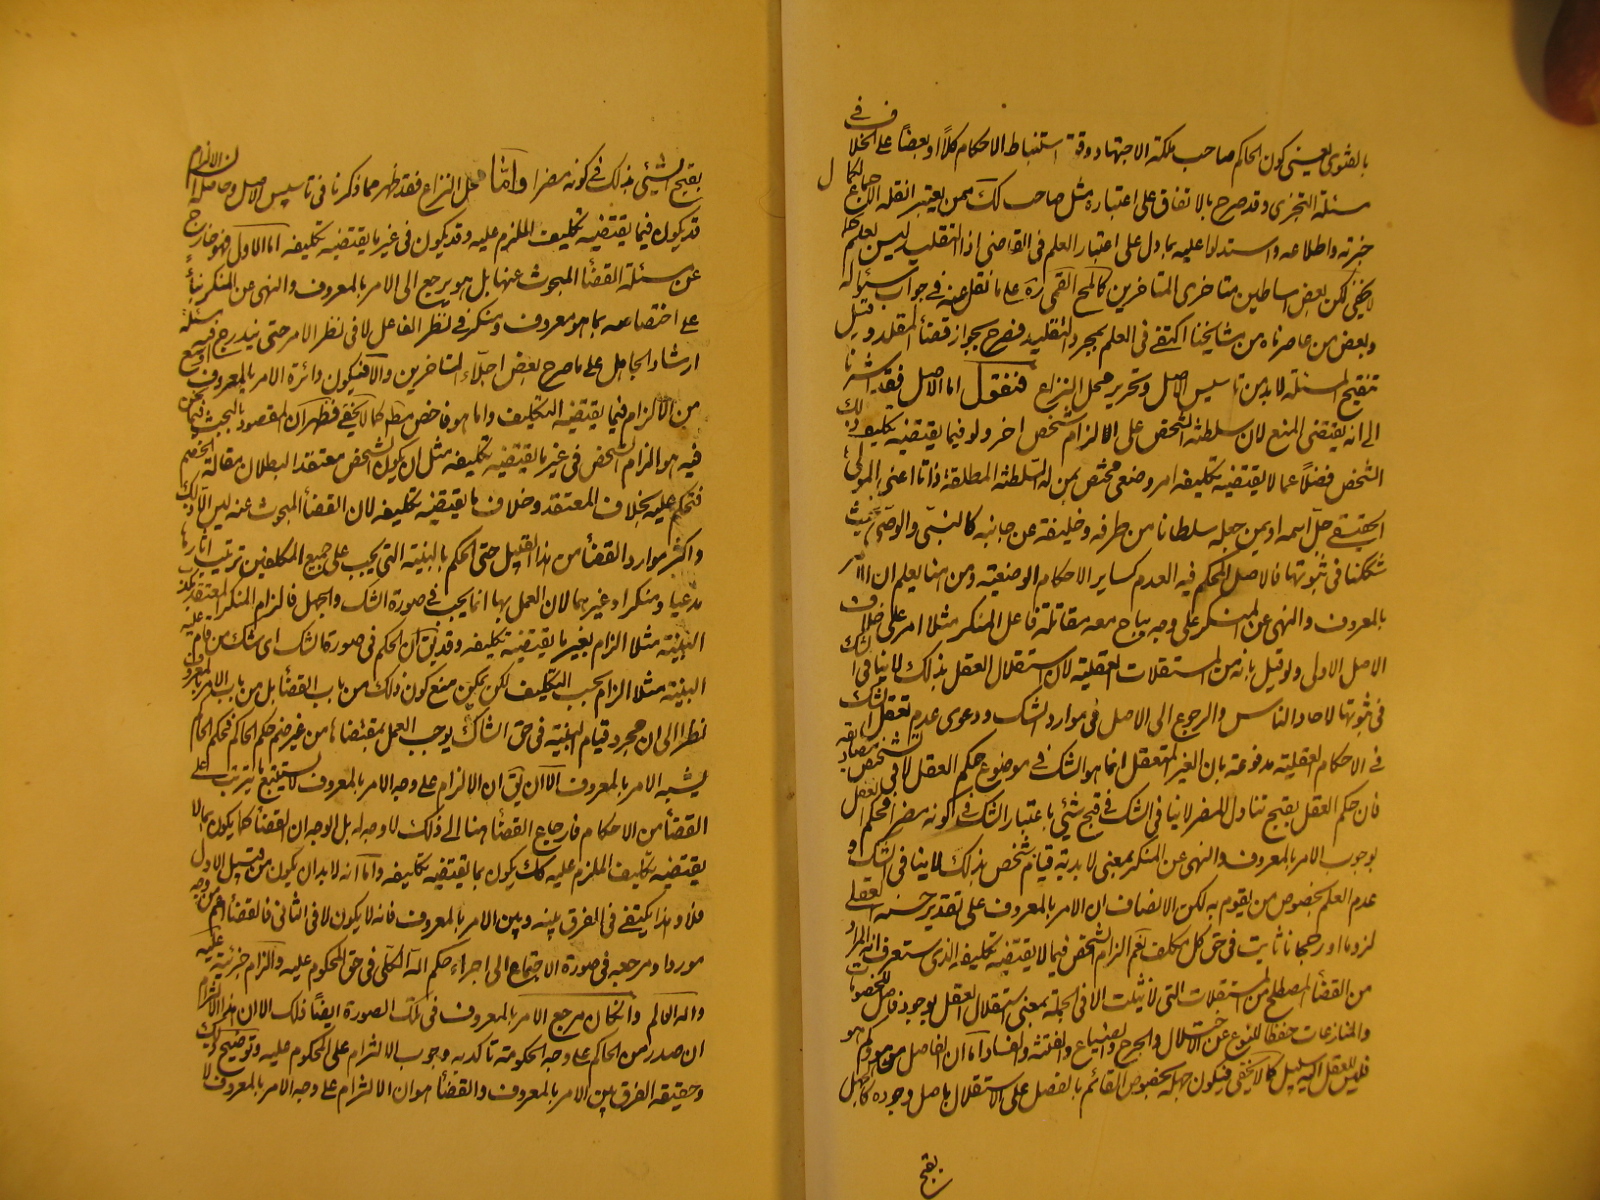 بالفتوى يعنى كون الحاكم صاحب ملكة الاجتهاد وقوة استنباط الاحكام كلاً او بعضاً على الخلاف فى
مسئلة التجزى وقد صرح بالاتفاق على اعتباره مثل صاحب لك ممن يعتبر نقله الاجماع لكمال
خبرته واطلاعه واستدلوا عليه بما دل على اعتبار العلم فى القاضى اذ التقليد ليس بعلم كما
لا يخفى لكن بعض اساطين متاخرى المتاخرين كالمحقق القمى ره على ما نقل عنه فى جواب سئواله
وبعض من عاصرناه من مشايخنا اكتفى فى العلم بمجرد التقليد فصرح بجواز قضاء المقلد وقبل
تنقيح المسئلة لا بد من تاسيس الاصل وتحرير محل النزاع فنقول اما الاصل فقد اشرنا
الى انه يقتضى المنع لان سلطنة الشخص على الالزام شخص اخر ولو فيما يقتضيه تكليف ذلك
الشخص فضلاً عما لا يقتضيه تكليفه امر وضعى مختص بمن له السلطنة المطلقة ذاتا اعنى المولى
الحقيقى جل اسمه او بمن جعله سلطانا من طرفه وخليفة عن جانبه كالنبى والوصى فحيث
شككنا فى ثبوتها فالاصل المحكم فيه العدم كساير الاحكام الوضعية ومن هنا يعلم ان الامر
بالمعروف والنهى عن المنكر على وجه يباح معه مقاتلة فاعل المنكر مثلا امر على خلاف
الاصل الاولى ولو قيل بانه من المستقلات العقلية لان استقلال العقل بذلك لا ينافى الشك
فى ثبوتها لاحاد الناس والرجوع الى الاصل فى موارد الشك ودعوى عدم تعقل الشك
فى الاحكام العقلية مدفوعة بان الغير المتعقل انما هو الشك فى موضوع حكم العقل لا فى تشخيص مصاديقه
فان حكم العقل بقبح تناول المضر لا ينافى الشك فى قبح شئى باعتبار الشك فى كونه مضرا فحكم العقل
بوجوب الامر بالمعروف والنهى عن المنكر بمعنى لا بدية قيام شخص بذلك لا ينافى الشك و
عدم العلم بخصوص من يقوم به لكن الانصاف ان الامر بالمعروف على تقدير حسنه العقلى
لزوما او رجحانا ثابت فى حق كل مكلف نعم الزام الشخص فيما لا يقتضيه تكليفه الذى ستعرف انه المراد
من القضاء المصطلح من المستقلات التى لا يثبت الا فى الجملة بمعنى استقلال العقل بوجود فاصل للخصومات
والمنازعات حفظا للنوع عن الاختلال والجرح والضياع والفتنة والفساد اما ان الفاصل من هو وكم هو
فليس للعقل اليه سبيل كما لا يخفى فيكون جهله بخصوص القائم بالفصل على الاستقلال باصل وجوده كالجهل
بقبح
بقبح الشئى بذلك فى كونه مضرا واما محل النزاع فقد ظهر مما ذكرنا فى تاسيس الاصل وحاصله ان الالزام
قد يكون فيما يقتضيه تكليف الملزم عليه وقد يكون فى غير ما يقتضيه تكليفه اما الاول فهو خارج
عن مسئلة القضاء المبحوث عنها بل هو يرجع الى الامر بالمعروف والنهى عن المنكر بناءً
على اختصاصه بما هو معروف ومنكر فى نظر الفاعل لا فى نظر الامر حتى يندرج فيه مسئلة
ارشاد الجاهل على ما صرح بعض اجلاء المتاخرين والا فيكون دائرة الامر بالمعروف اوسع
من الالزام فيما يقتضيه التكليف واما هو فاخص مطلقا كما لا يخفى فظهر ان المقصود بالبحث فيما نحن
فيه هو الزام الشخص فى غير ما يقتضيه تكليفه مثل ان يكون الشخص معتقد البطلان مقالة الخصم
فتحكم عليه بخلاف المعتقد وخلاف ما يقتضيه تكليفه لان القضاء المبحوث عنه ليس الا ذلك
واكثر موارد القضاء من هذا القبيل حتى الحكم بالبينة التى يجب على جميع المكلفين ترتيب اثارها
مدعيا ومنكرا وغيرهما لان العمل بها انما يجب فى صورة الشك والجهل فالزام المنكر المعتقد بكذب
البينة مثلا الزام بغير ما يقتضيه تكليفه وقد يق ان الحكم فى صورة الشك اى شك من قام عليه
البينة مثلا الزام بحسب التكليف لكن يمكن منع كون ذلك من باب القضاء بل من باب الامر بالمعروف
نظرا الى ان مجرد قيام البينة فى حق الشاك يوجب العمل بمقتضاها من غير ضم حكم الحاكم فحكم الحاكم
يشبه الامر بالمعروف الا ان يق ان الالزام على وجه الامر بالمعروف لا يستتبع ما يترتب على
القضاء من الاحكام فارجاع القضاء هنا الى ذلك لا وجه له بل الوجه ان القضاء كما يكون بما لا
يقتضيه تكليف الملزم عليه كك يكون بما يقتضيه تكليفه واما انه لا بد ان يكون من قبيل الاول
فلا وهذا يكتفى فى الفرق بينه وبين الامر بالمعروف فانه لا يكون الا فى الثانى فالقضاء اعم من وجه
موردا ومرجعه فى صورة الاجتماع الى اجراء حكم اله الكلى فى حق المحكوم عليه والزام جزئيته عليه
واله العالم وان كان مرجع الامر بالمعروف فى تلك الصورة ايضاً ذلك الا ان هذا الالزام
ان صدر من الحاكم على وجه الحكومة تاكد به وجوب الالتزام على المحكوم عليه وتوضيح ذلك
وحقيقة الفرق بين الامر بالمعروف والقضاء هو ان الالتزام على وجه الامر بالمعروف لا